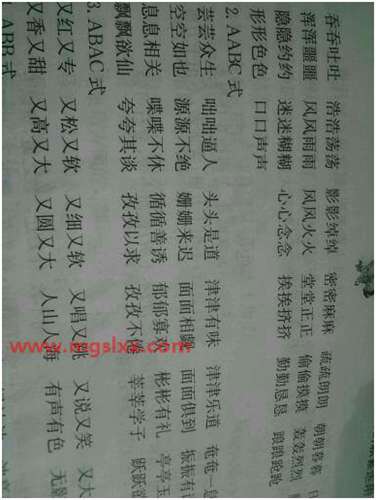 吞吞吐吐 浩浩荡荡 影影绰绰 密密麻麻 疏疏朗朗 朝朝暮暮
浑浑噩噩 风风雨雨 风风火火 堂堂正正 偷偷摸摸 轰轰烈烈
隐隐约约 迷迷糊糊 心心念念 挨挨挤挤 勤勤恳恳 踉踉跄跄
形形色色 口口声声
2. AABC 式
芸芸众生 咄咄逼人 头头是道 津津有味 津津乐道 奄奄一
空空如也 源源不绝 姗姗来迟 面面相觑 面面俱到 振振有
息息相关 喋喋不休 循循善诱 郁郁寡欢 彬彬有礼 亭亭玉
飘飘欲仙 夸夸其谈 孜孜以求 孜孜不倦 莘莘学子 跃跃欲
3. ABAC 式
又红又专 又松又软 又细又软 又唱又跳 又说又笑 又大
又香又甜 又高又大 又圆又大 人山人海 有声有色 无影
ABB 式
www.mgslxs.com